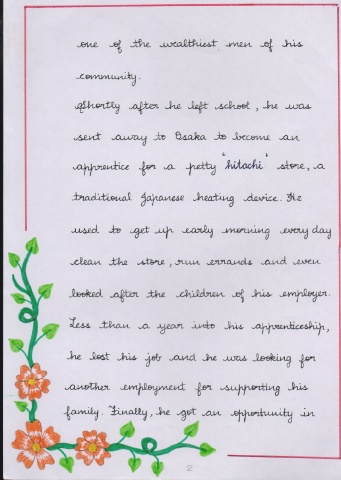 one of the wealthiest men of his
community.
Shortly after he left school, he was
sent away to Osaka to become an
apprentice for a petty "hitachi" store, a
traditional Japanese heating device. He
used to get up early morning every day
clean the store, run errands and even
looked after the children of his employer.
Less than a year into his apprenticeship,
he lost his job and he was looking for
another employment for supporting his
family. Finally, he got an opportunity in
2